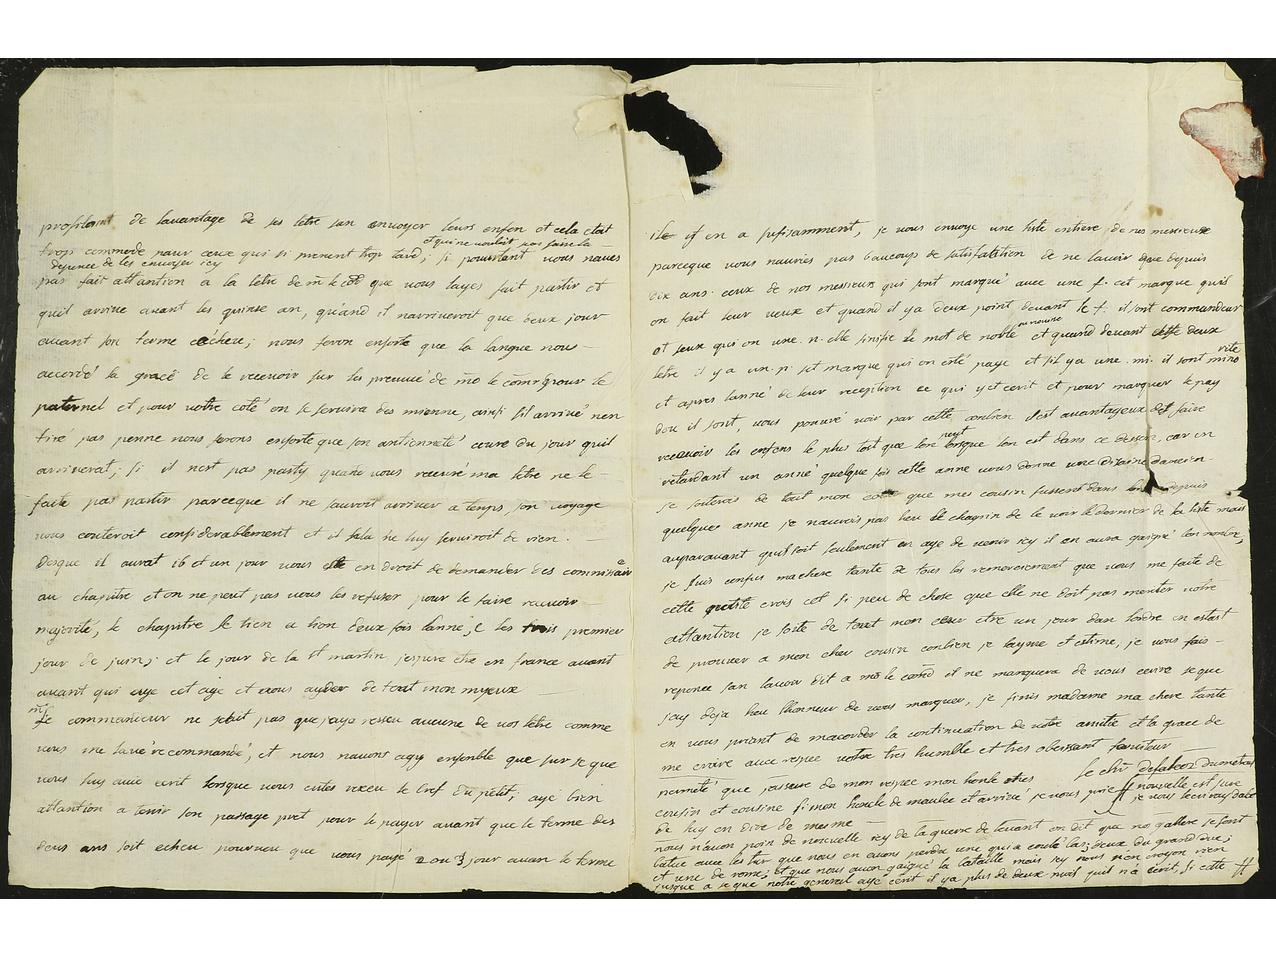 profitoint de lavantage de ses letre san envoyer leurs enfen et cela etat
trop commode pour ceux qui si prenent trop tard; si pourtant vous naves
et qui ne vouloit pas faire la
depence de les envoyer icy
pas fait attantion a la letre de mr le que vous layes fait partir et
quil arrive avant les quinse an, quand il narriveroit que deux jour
avant son terme echeu; nous feron ensorte que la langue nou
accorde la grace de le recevoir sur les preuve de mo le pour le
paternel et pour votre coté on se servira des mienne, ainsi sil arrive nen
tiré pas penne nous ferons ensorte que son antienneté coure du jour quil
arriverat; si il nest pas party quand vous receve ma letre ne le
faite pas partir parceque il ne sauroit arriver a temps son voyage
vous couteroit considerablement et il sela ne luy serviroit de rien.
Desque il aurat 16 et un jour vous ete en droit de demander des commisaire
au chapitre et on ne peut pas vous les refuser pour le faire recevoir
majorité, le chapitre se tien a lion deux fois lanné, les trois premier
jour de juin; et le jour de la st martin, jespere etre en france avant
avant qui aye cet age et vous ayder de tout mon myeux
mr Le commandeur ne sait pas que jaye resseu aucune de vos letre comme
vous me lavé recommandé, et nous navons agy ensenble que sur se que
vous luy avie ecrit lorsque vous eutes receu le bref du petit; ayé bien
attantion a tenir son passage pret pour le payer avant que le terme des
deus ans soit echeu pourveu que vous payé 2 ou 3 jour avan le terme
il y en a sufisamment, je vous envoye une liste entiere de nos messieux
parceque vous nauries pas beaucoup de satisfaction de ne lavoir que depuis
dix ans. ceux de nos messieurs qui sont marqué avec une f. cet marque quil
on fait leur veux et quand il ya deux point devant le f. il sont commandeur
et seux qui on une .n. elle sinifie le mot de noble ou novice et quand devant cette deux
letre il y a un .p. set marque qui on eté page et sil ya une .mi. il sont mino
rite
et apres lanné de leur reception ce qui y et ecrit et pour marquer le pay
dou il sont, vous pouvé voir par cette combien il est avantageux de faire
recevoir les enfens le plus tost que lon peut lorsque lon est dans ce dessin, car en
retardant un anné quelque fois cette anne vous donne une dizaine dancien.
je soiterois de tout mon cœur que mes cousin fussent dans depuis
quelques anne je naurois pas heu le chagrin de le voir le dernier de la liste mais
auparavant quil soit seulement en age de venir icy il en aura gaigné bon nombre,
je suis confus ma chere tante de tous les remerciement que vous me faite de
cette crois cet si peu de chose que elle ne doit pas meriter votre
attantion je soite de tout mon cœur etre un jour dan lordre en estat
de prouver a mon cher cousin conbien je layme et estime, je vous fais
reponce san lavoir dit a mo le il ne manquera de vous ecrire se que
jay deja heu lhonneur de vous marquer, je finis madame ma chere tante
en vous priant de macorder la continuation de votre amitie et la grace de
me croire avec respec votre tres humble et tres obeissant serviteur
le chr
permeté que jassure de mon respec mon honcle mes
cousin et cousine si mon honcle de et arrivé je vous prie
de luy en dire de mesme
nous navon poin de nouvelle icy de la guerre de levant on dit que no gallere se sont
batue avec les tur que nous en avons perdu une qui a coulé bas; deux du grand duc;
et une de rome; et que nous avon gaigné la bataille mais icy nous nen croyon rien
jusque a se que notre general ayé ecrit il ya plus de deux mois quil na ecrit, si cette #
# nouvelle est sure
je vous lecriray